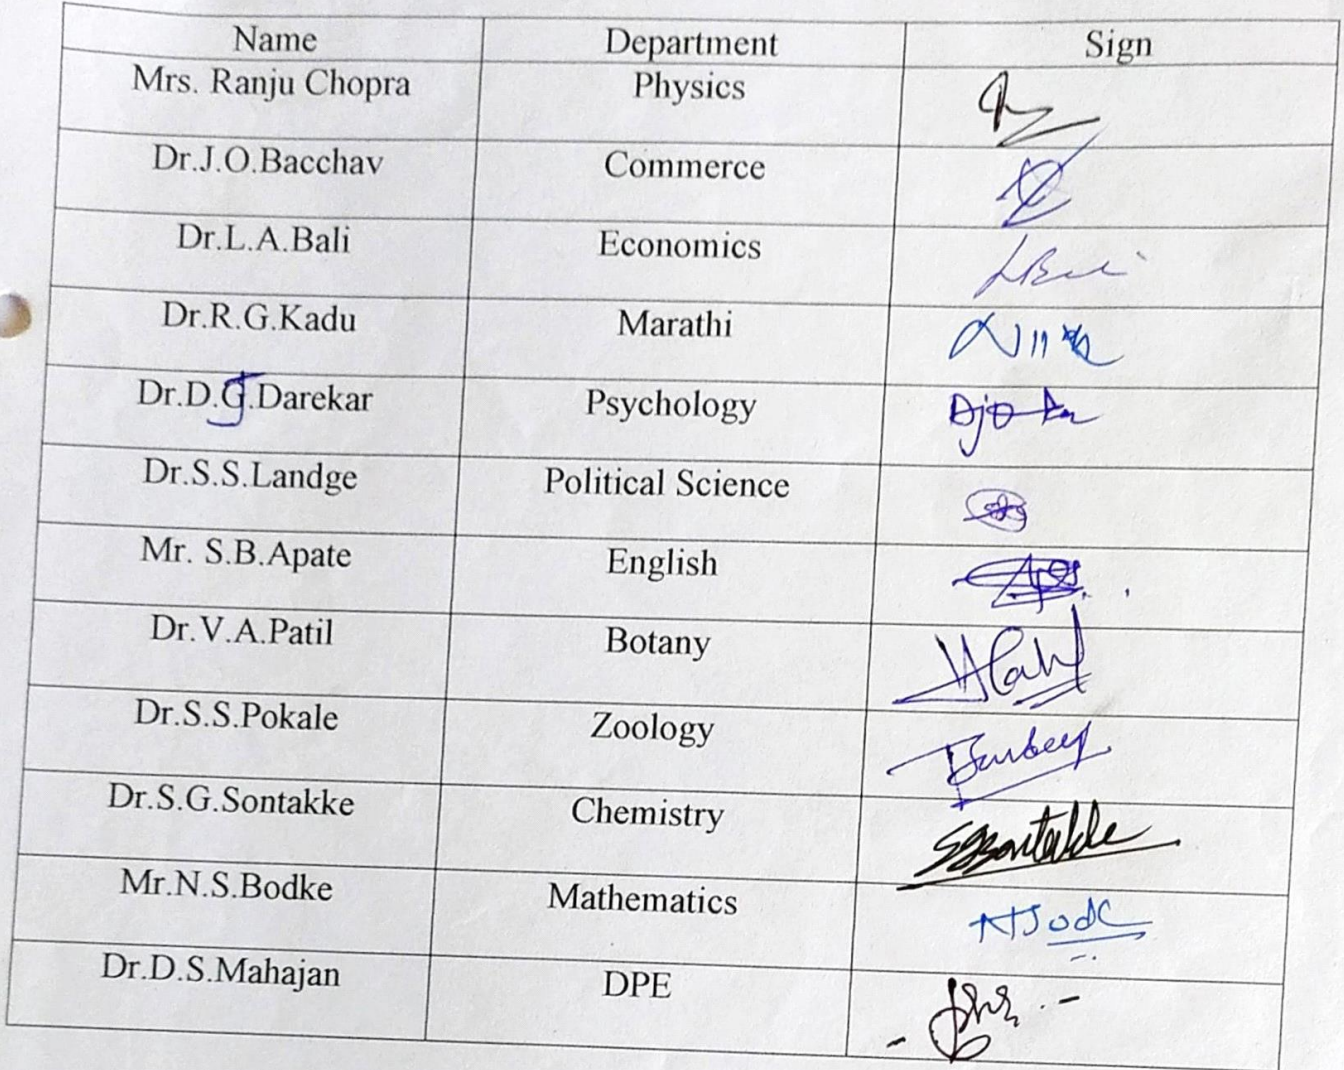 Name Department Sign
Mrs. Ranju Chopra Physics
Dr.J.O.Bacchav Commerce
Dr.L.A.Bali Economics
Dr.R.G.Kadu Marathi
Dr.D.J.Darekar Psychology
Dr.S.S.Landge Political Science
Mr. S.B.Apate English
Dr.V.A.Patil Botany
Dr.S.S.Pokale Zoology
Dr.S.G.Sontakke Chemistry SGSontakke
Mr.N.S.Bodke Mathematics
Dr.D.S.Mahajan DPE